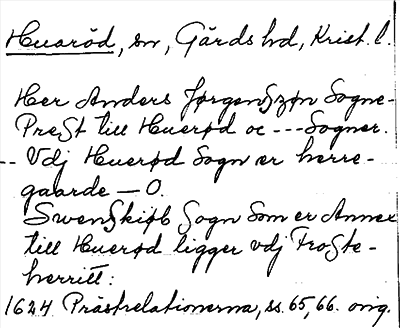 Huaröd, sn, Gärds hd, Krist. l.
Her Anders JørgenSzøn Sogne-
PreSt till Huerød oc --- Sogner.
-- Vdj Huerød Sogn er herre-
gaarde — O.
SwenSkiøb Sogn Som er Annex
till Huerød ligger vdj FroSte-
herritt:
1624 Prästrelationerna, ss. 65, 66. orig.